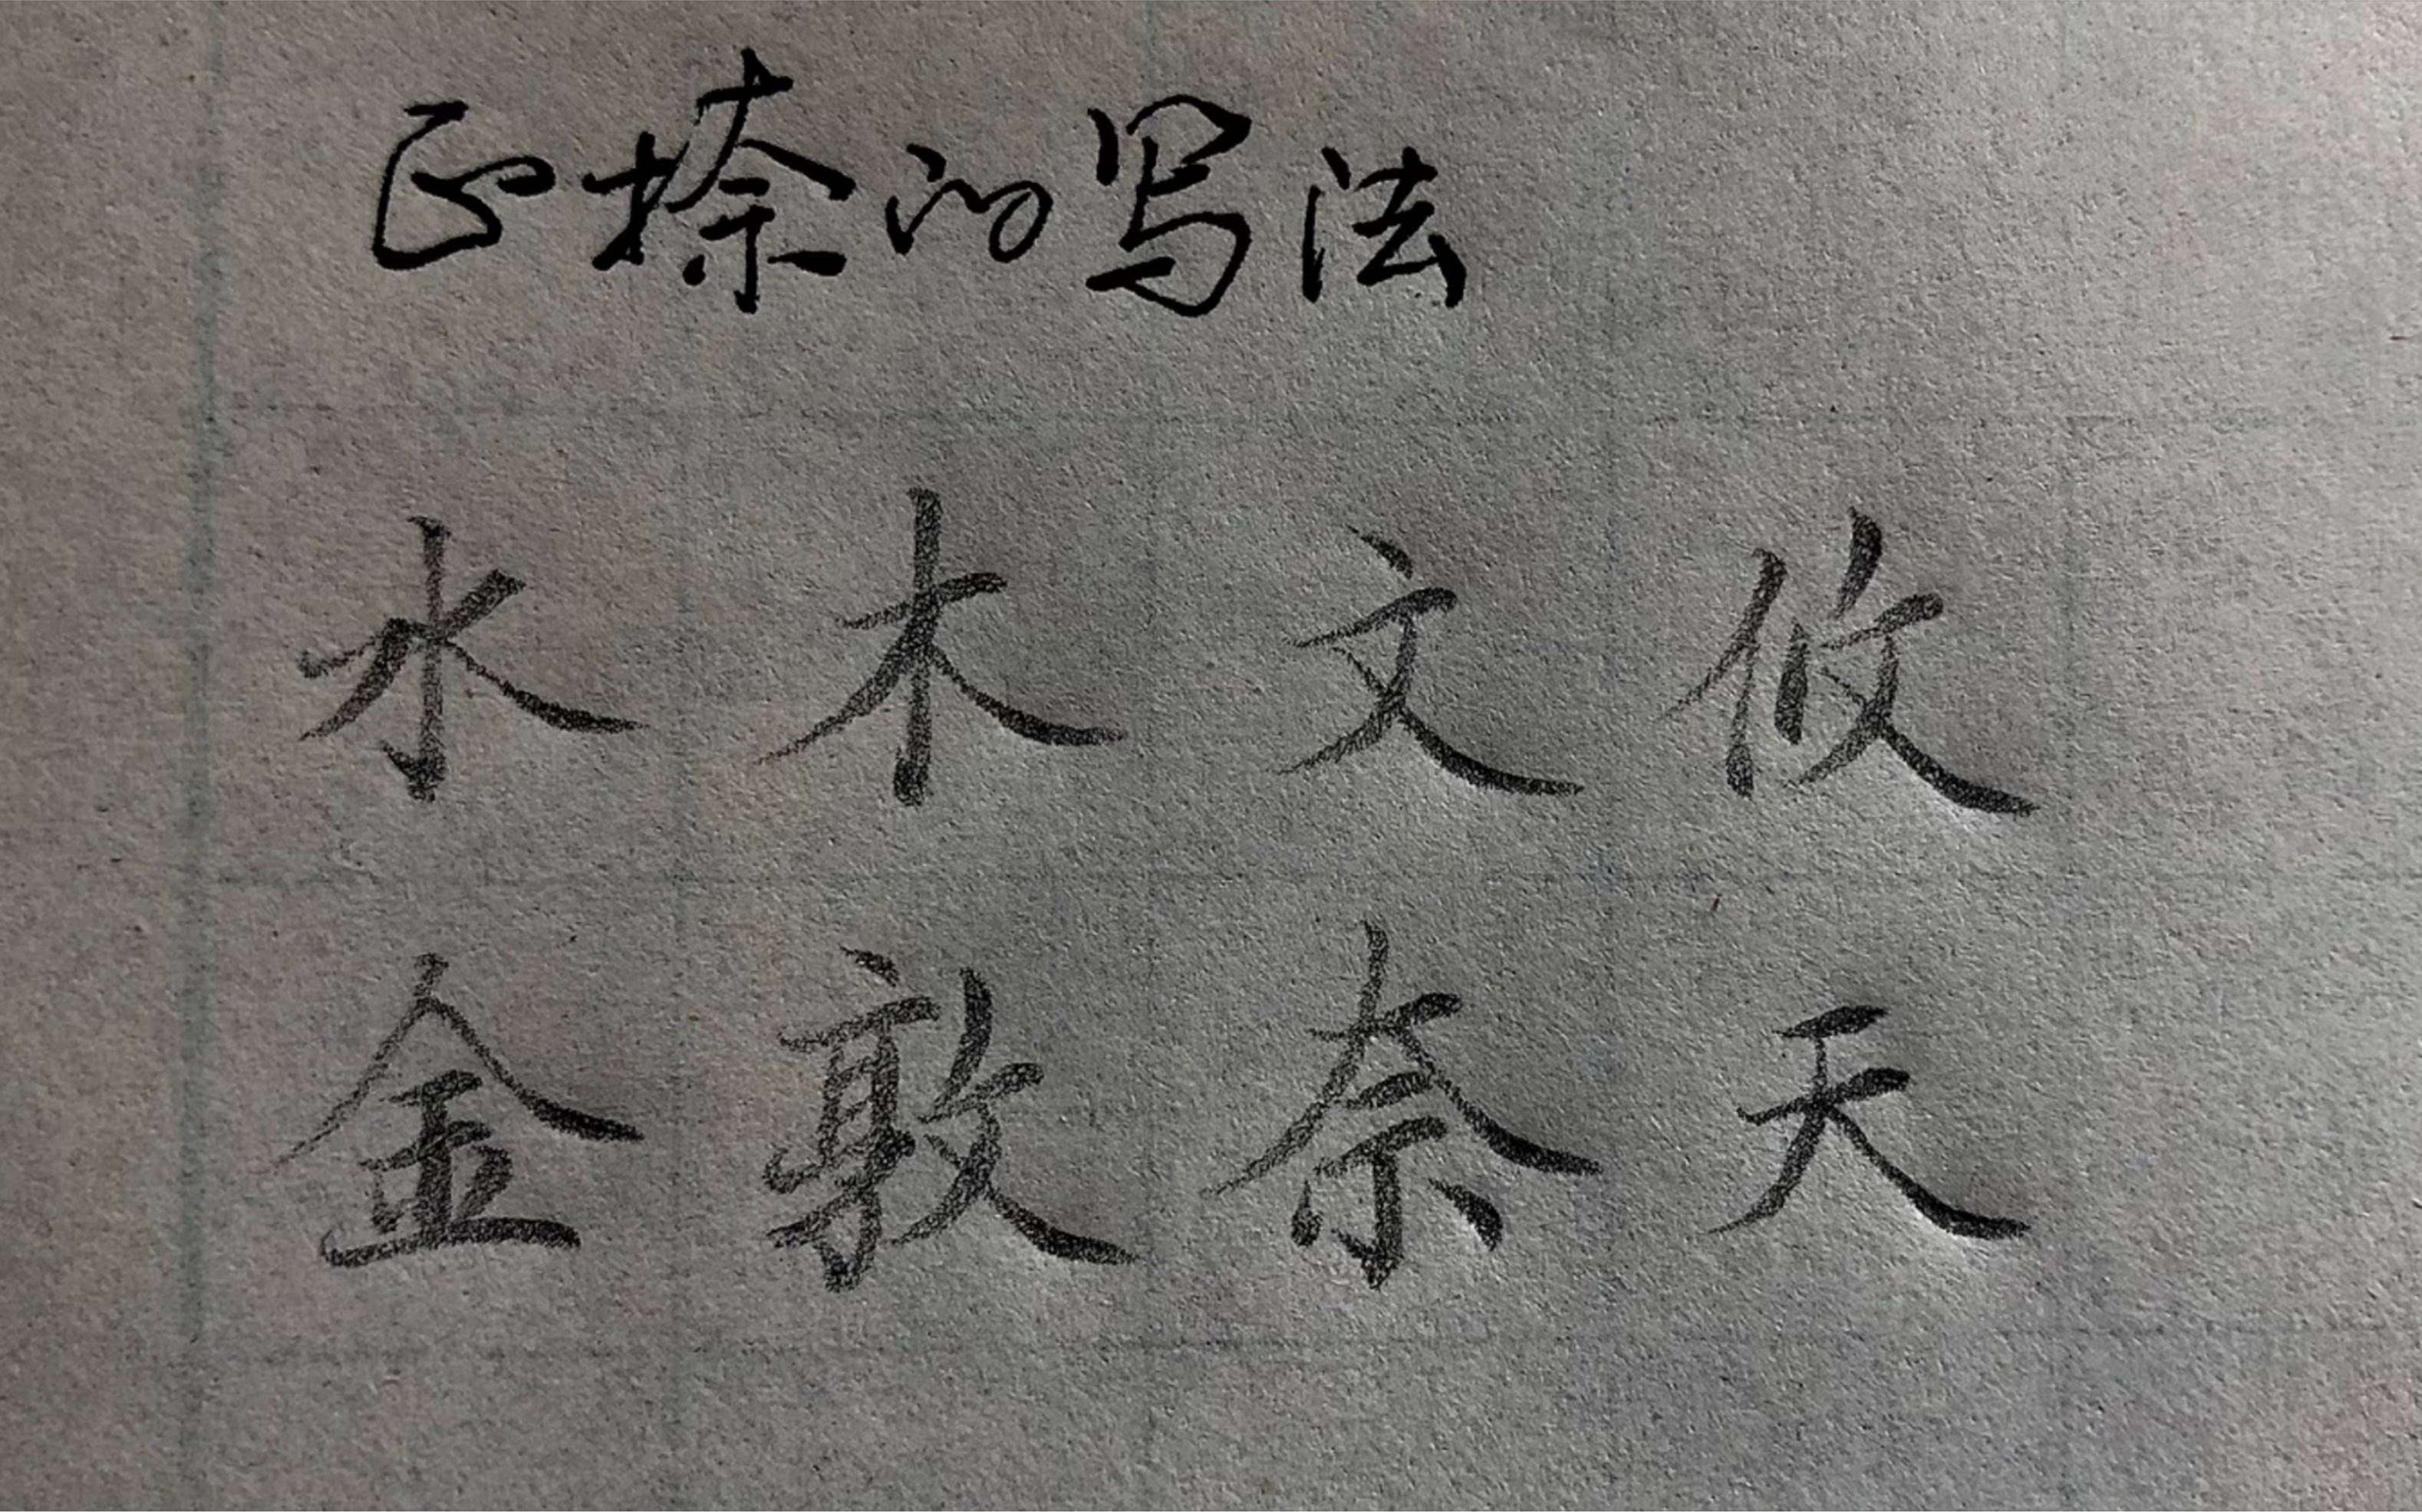 正捺的写法
水木文攸
金敦奈天